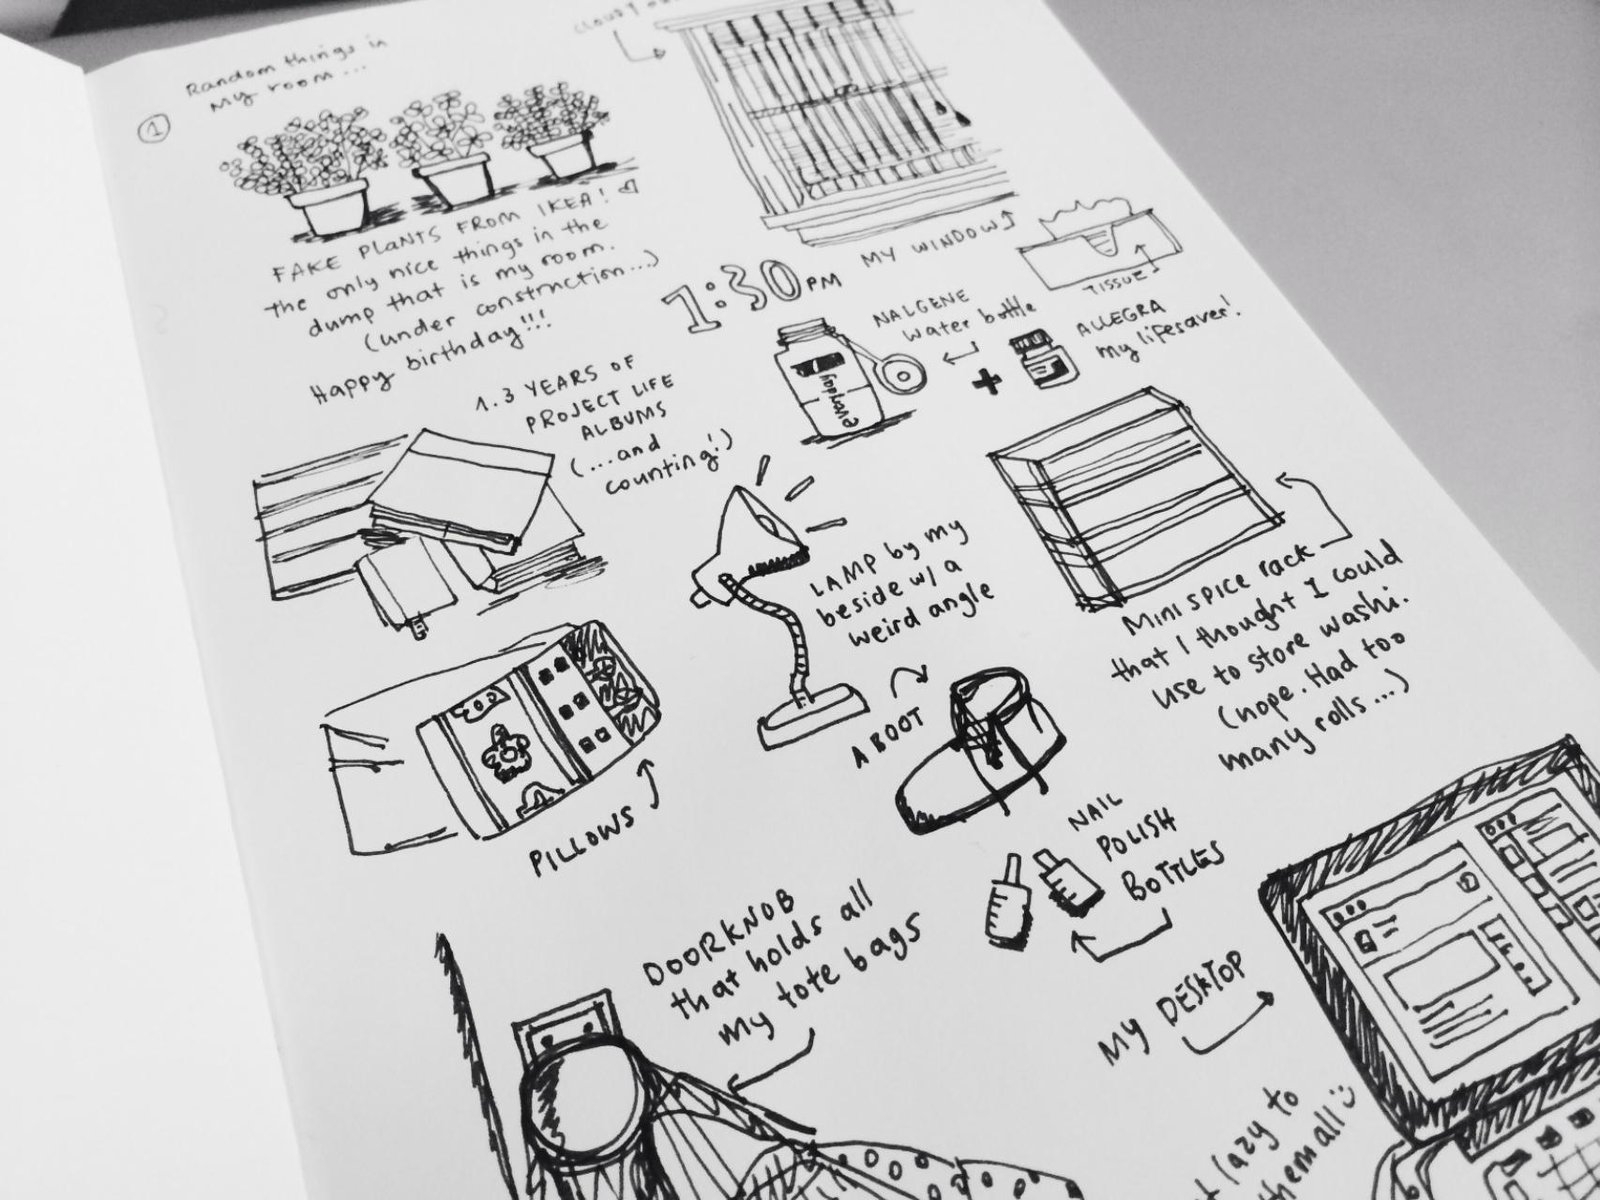 Random things in
my room...
1
FAKE PLANTS FROM IKEA!
the only nice things in the
dump that is my room.
(under construction...)
Happy birthday!!!
MY WINDOW
TISSUE
1:30PM
NALGENE
water bottle
everyday
ALLEGRA
my lifesaver!
1.3 YEARS OF
PROJECT LIFE
ALBUMS
(...and
counting!)
LAMP by my
beside w/ a
weird angle
MINI SPICE rack
that I thought I could
use to store washi.
(nope. Had too
many rolls...)
PILLOWS
A BOOT
NAIL
POLISH
BOTTLES
DOORKNOB
that holds all
my tote bags
MY DESKTOP
lazy to
them all